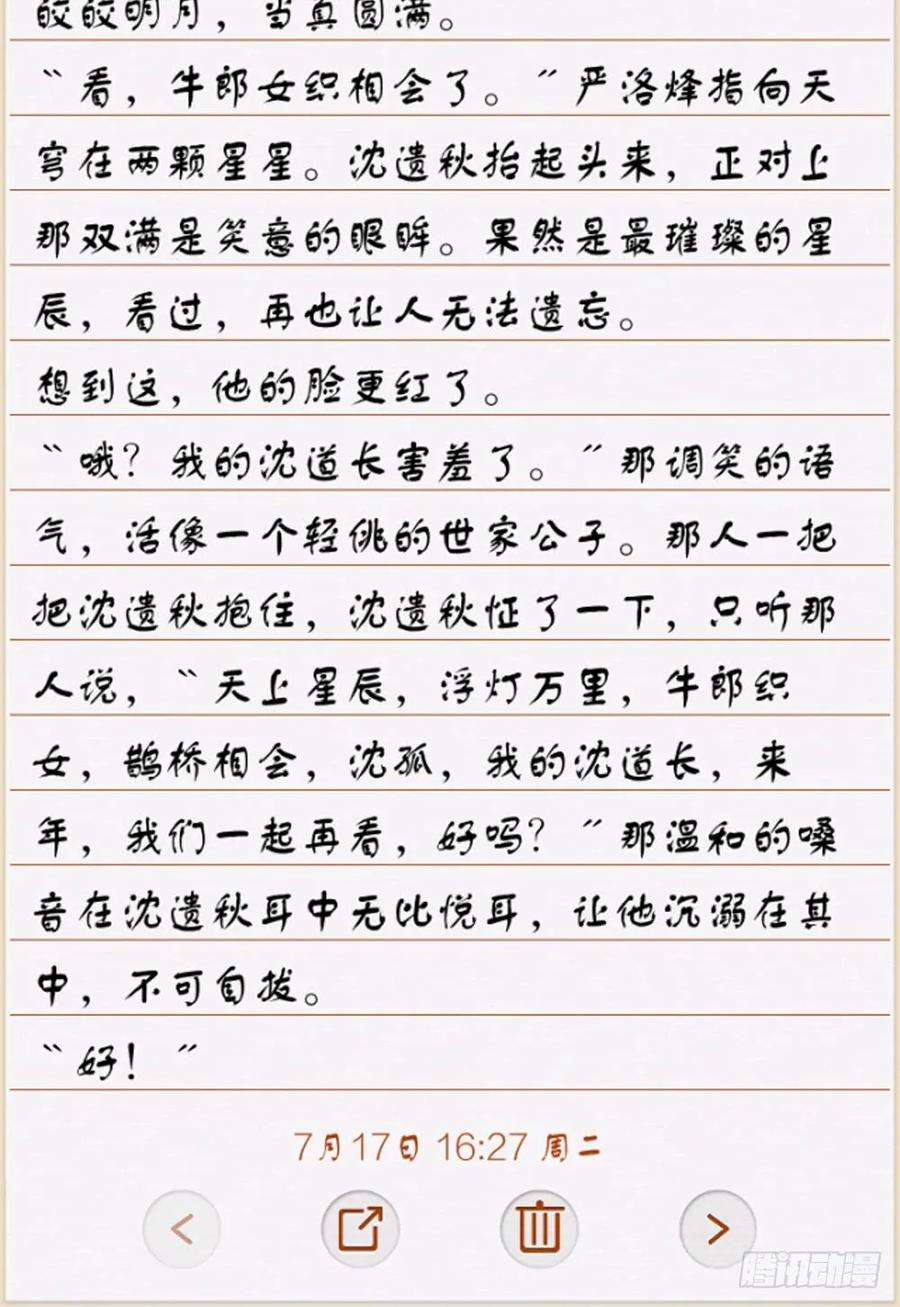 皎皎明月，当真圆满。
“看，牛郎女织相会了。”严洛烽指向天
穹在两颗星星。沈遗秋抬起头来，正对上
那双满是笑意的眼眸。果然是最璀璨的星
辰，看过，再也让人无法遗忘。
想到这，他的脸更红了。
“哦？我的沈道长害羞了。”那调笑的语
气，活像一个轻佻的世家公子。那人一把
把沈遗秋抱住，沈遗秋怔了一下，只听那
人说，“天上星辰，浮灯万里，牛郎织
女，鹊桥相会，沈孤，我的沈道长，来
年，我们一起再看，好吗？”那温和的嗓
音在沈遗秋耳中无比悦耳，让他沉溺在其
中，不可自拔。
“好！”
7月17日 16:27 周二
腾讯动漫